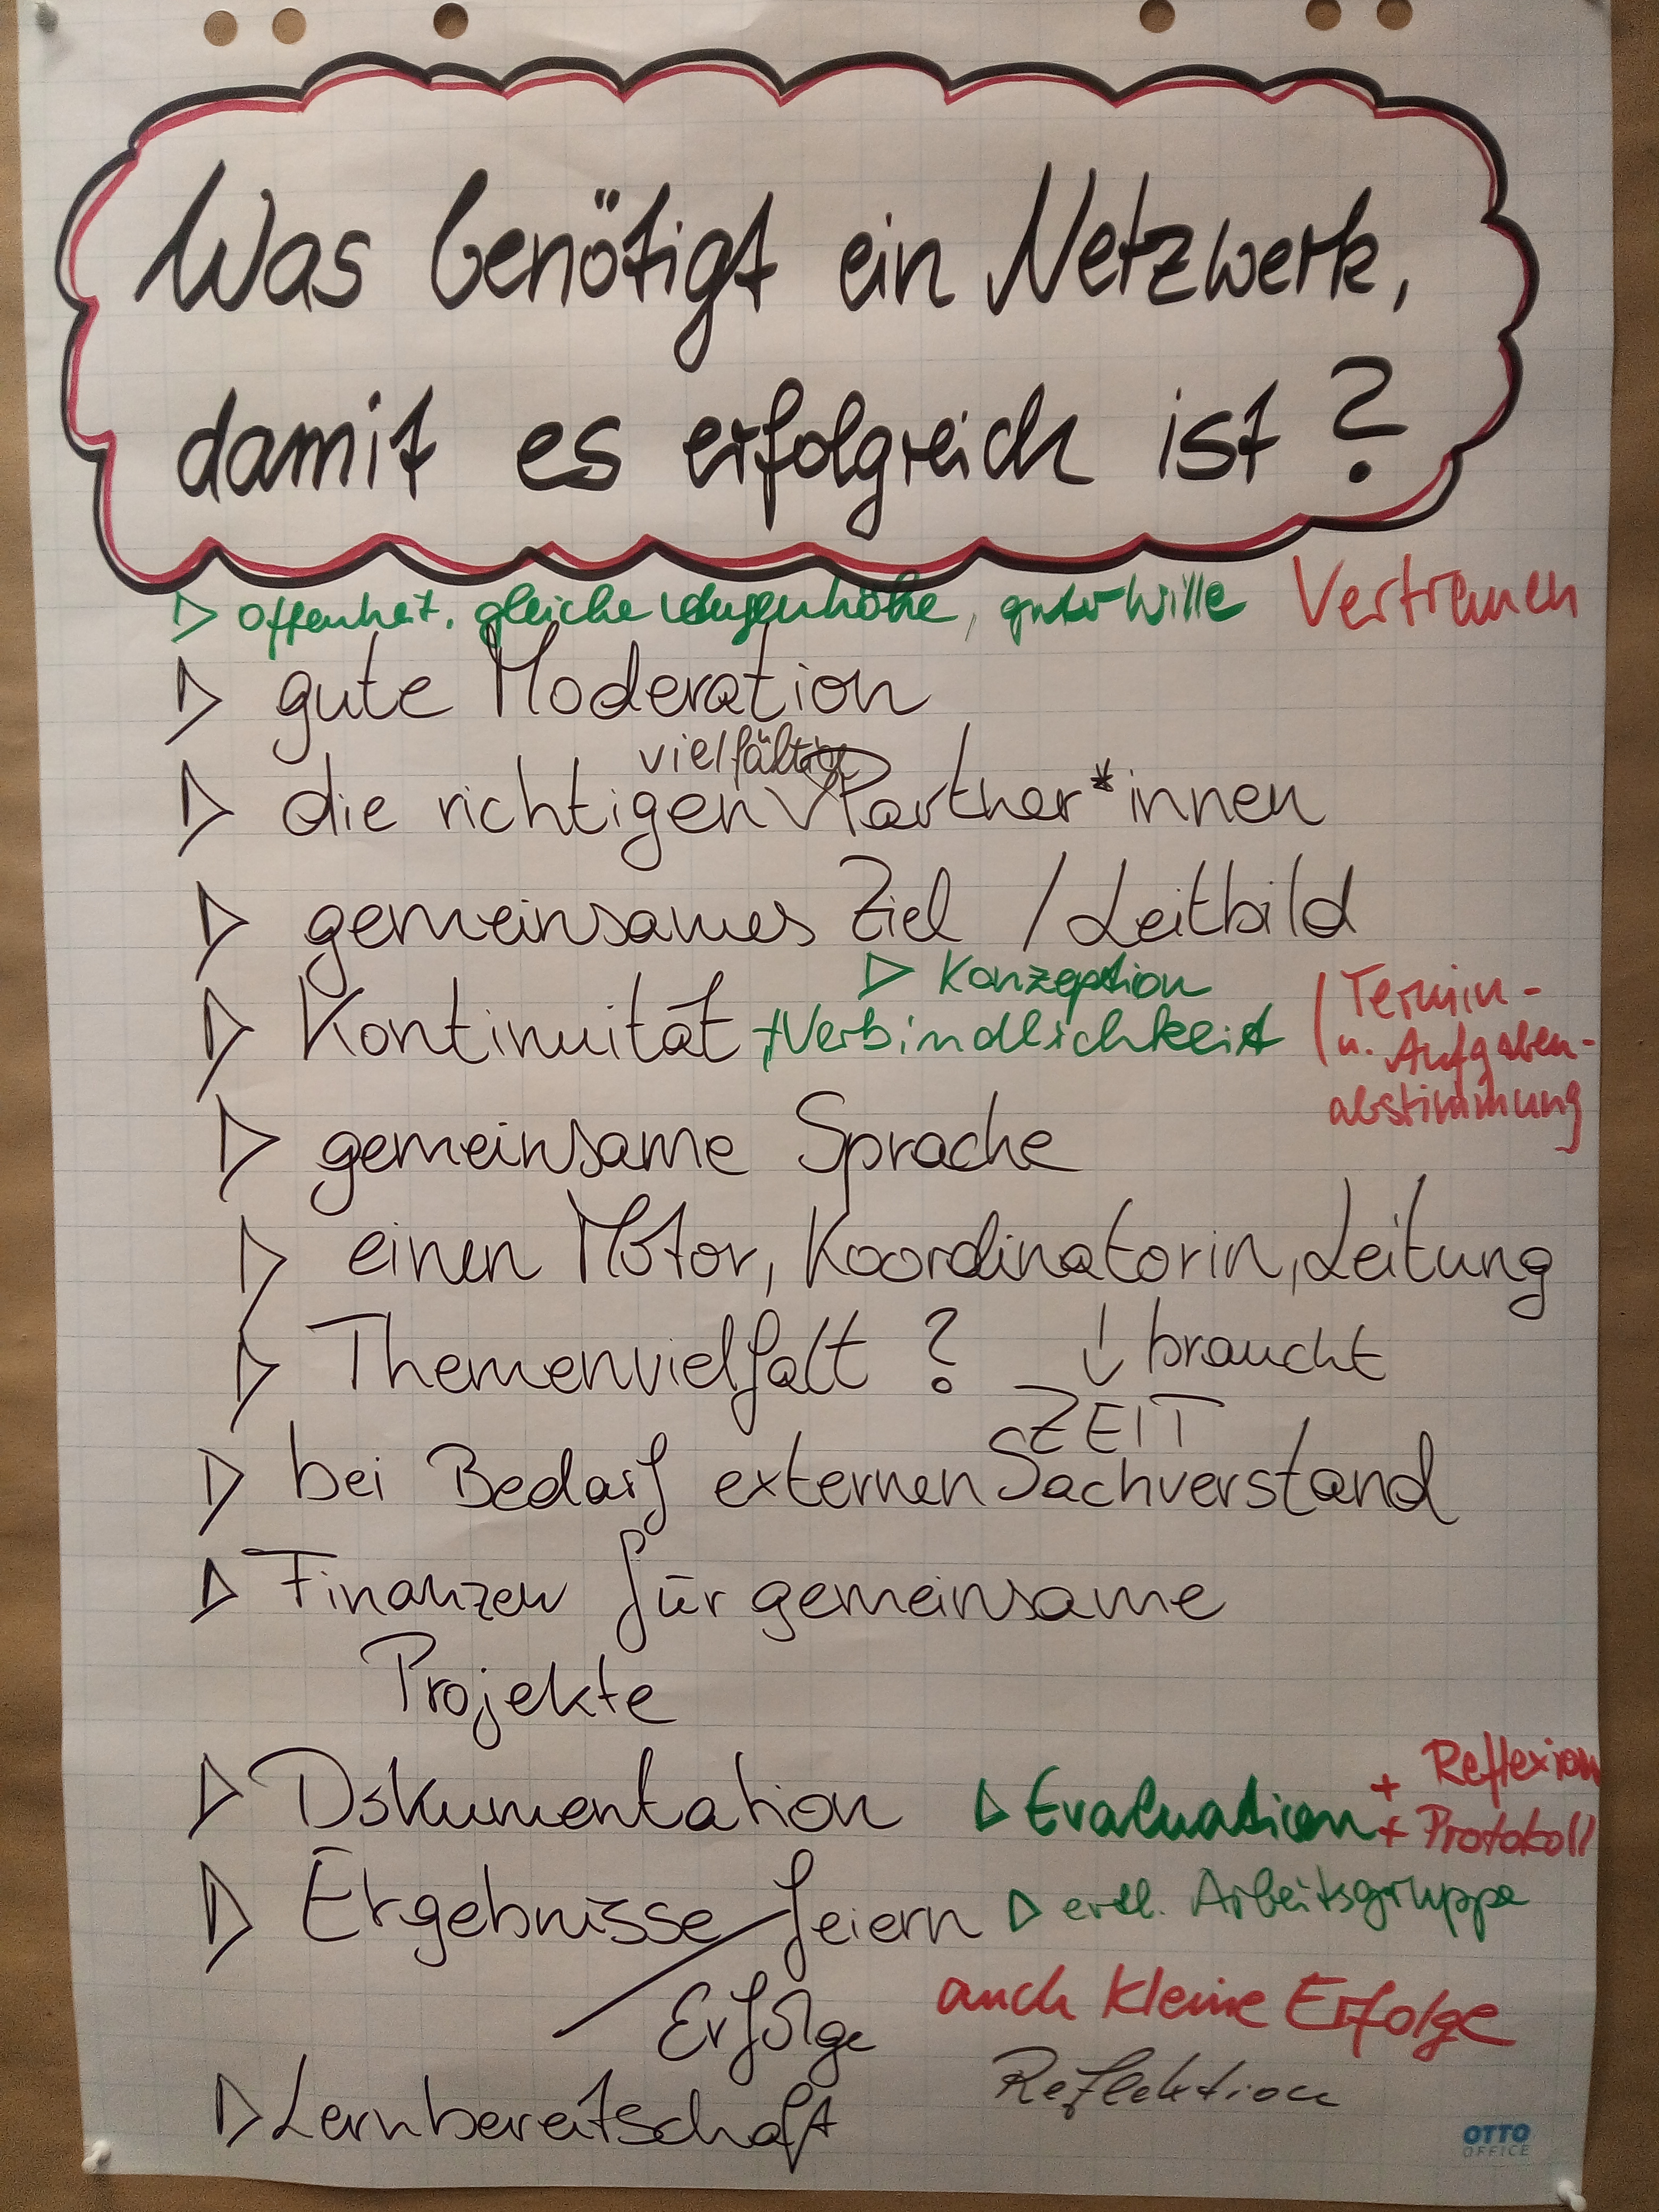 Was benötigt ein Netzwerk,
damit es erfolgreich ist?
▷ Offenheit, gleiche Augenhöhe, guter Wille Vertrauen
▷ gute Moderation
vielfältige
▷ die richtigen Partner*innen
▷ gemeinsames Ziel / Leitbild
▷ Konzeption
▷ Kontinuität + Verbindlichkeit / Termin-
u. Aufgaben-
abstimmung
▷ gemeinsame Sprache
▷ einen Motor, Koordinatorin, Leitung
▷ Themenvielfalt ? ↓ braucht
ZEIT
▷ bei Bedarf externen Sachverstand
▷ Finanzen für gemeinsame
Projekte
▷ Dokumentation ▷ Evaluation + Reflexion
+ Protokoll
▷ Ergebnisse / feiern ▷ evtl. Arbeitsgruppe
Erfolge auch kleine Erfolge
Reflektion
▷ Lernbereitschaft
OTTO
OFFICE